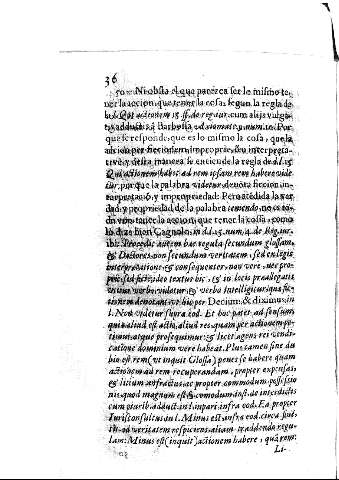 36
50 Ni obsta el que parecer ser lo mismo te-
ner la accion, que tener la cosa, segun la regla de
la l. Qui actionem 15. ff. de reg. iur. cum alijs vulga-
tis adductis à Barbossa
que se responde, que es lo mismo la cosa, que la
accion per fictionem, impropriè, seu interpreta-
tivè y desta manera se entiende la regla de d.l.15
Qui actionem habet ad rem ipsam rem habere vide-
tur, porque la palabra videtur denota ficcion in-
terpretatiò, y impropriedad: Pero atēdida la ver-
dad, y propriedad de la palabra tenendo, no es to-
do vno tener la accion, que tener la cosa, como
lo dize bien Cagnolo in d.l.15. num. 4. de Reg. iur.
ibi: Procedit autem hæc regula secundum glossam,
& Doctores non secundum veritatem, sed ex legis
interpretatione & consequenter, non verè, nec pro-
priè, sed fictè, ideo textus hic, & in locis præallegatis
utitur verbo, videtur, & verbo Intelligitur, quæ fic-
tionem denotant ut hic per Decium, & diximus in
l. Non videtur supra eod. Et hoc patet, ad sensum
quia aliud est actio, aliud res, quam per actionem pe-
timus, atque prosequimur: & licet agens rei vendi-
catione dominium vere habeat. Plus tamen sine du-
bio est rem (ut inquit Glossa) penes se habere quam
actionem ad rem recuperandam, propter expensas,
& litium anfractus, ac propter commodum possessio
nis, quod magnum est & commodum inst. de interdictis
cum pluribus adduct. in l. in pari. infra eod. Ea propter
Iurisconsultus in l. Minus est, infra eod. circa finē,
ad veritatem respiciens, aliam tradendo regu-
lam: Minus est (inquit) actionem habere, quā rem.
Li-